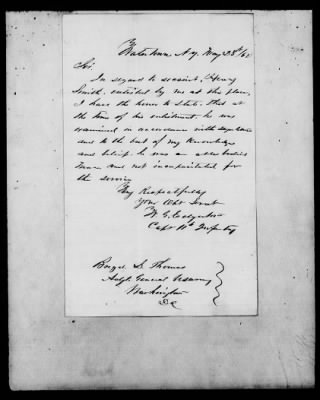 Watertown N.Y. May 28th/61
Sir.
In regard to recruit, Henry
Smith. enlisted by me at this place,
I have the honor to state. that at
the time of his enlistment. he was
examined in accordance with regulations
and to the best of my knowledge
and belief. he was an able bodied
man and not incapacitated for
the service
Very Respectfully
Your Obt Servt
Capt Infantry
L. Thomas
Adjt. General US Army
Washington
D.C.